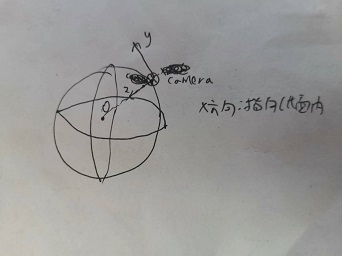 y
camera
z
O
x方向:指向纸面内